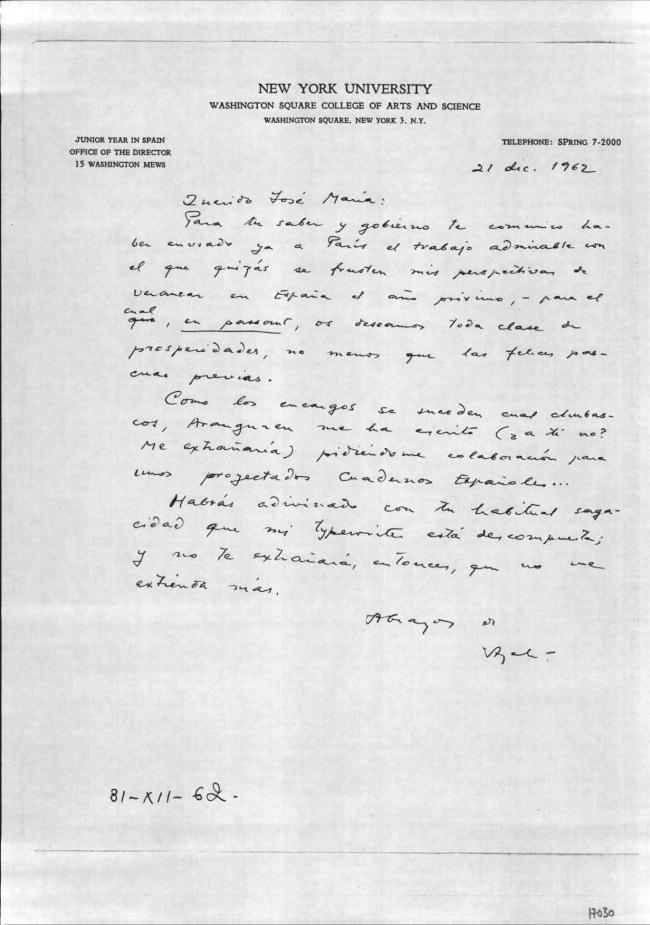 NEW YORK UNIVERSITY
WASHINGTON SQUARE COLLEGE OF ARTS AND SCIENCE
WASHINGTON SQUARE, NEW YORK 3, N.Y.
JUNIOR YEAR IN SPAIN
OFFICE OF THE DIRECTOR
15 WASHINGTON MEWS
TELEPHONE: SPRING 7-2000
21 dic. 1962
Querido José María:
Para tu saber y gobierno te comunico ha-
ber enviado ya a París el trabajo admirable con
el que quizás se frusten mis perspectivas de
veranear en España el año próximo, – para el
cual
que, en passant, os deseamos toda clase de
prosperidades, no menos que las felices pas-
cuas previas.
Como los encargos se suceden cual chubas-
cos, Aranguren me ha escrito (¿a ti no?
Me extrañaría) pidiéndome colaboración para
unos proyectados Cuadernos Españoles...
Habrás adivinado con tu habitual saga-
cidad que mi typewriter está descompuesta;
y no te extrañará, entonces, que no me
extienda más.
Abrazos de
Ayala-
81-XII-62.
17030